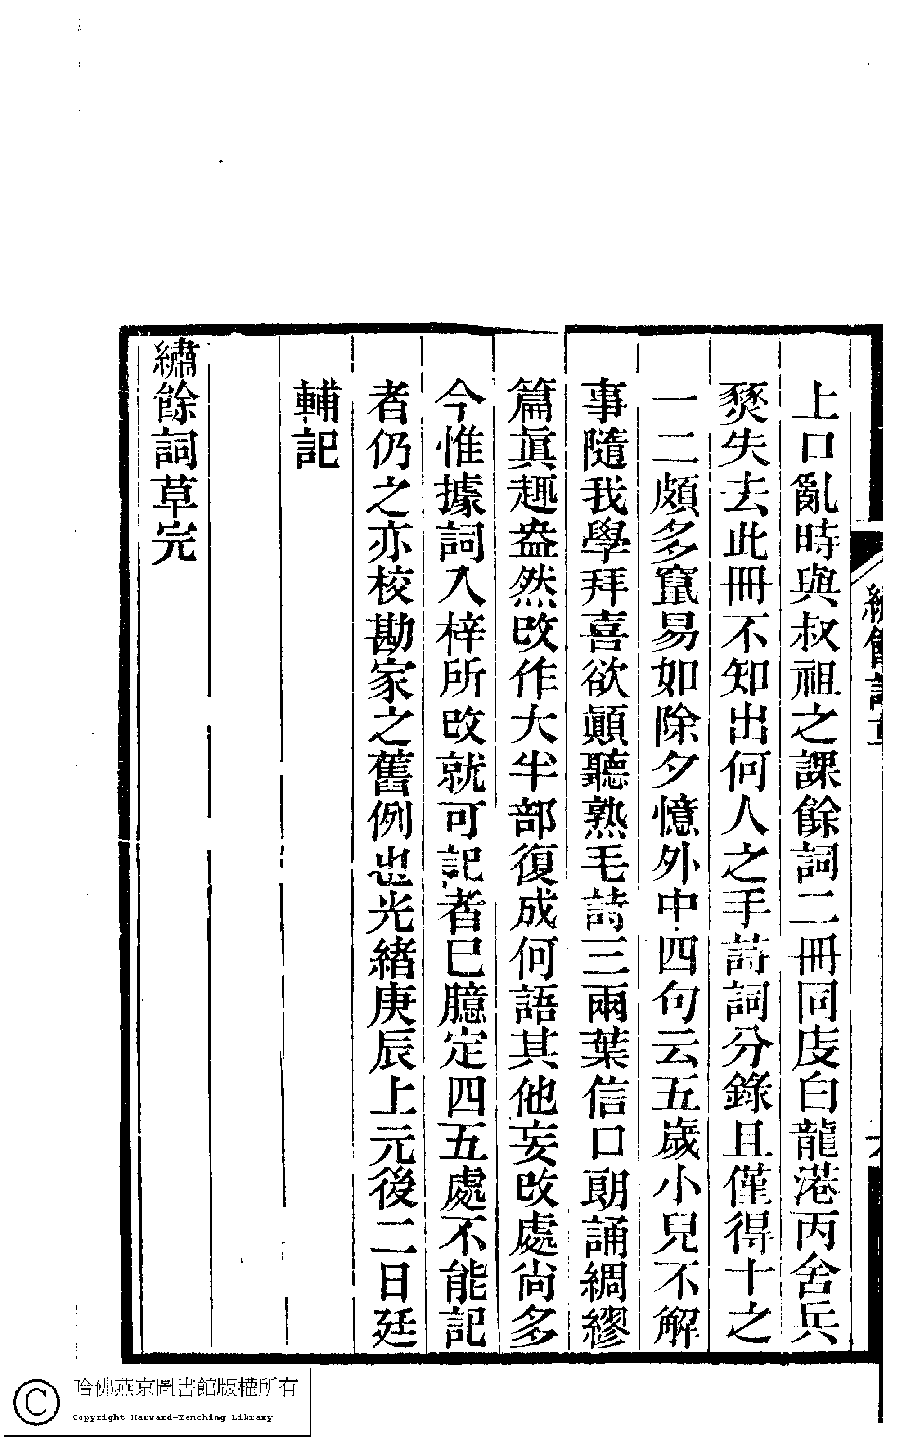 上口亂時與叔祖之課餘詞二冊同庋白龍港丙舍兵
燹失去此冊不知出何人之手詩詞分錄且僅得十之
一二頗多竄易如除夕憶外中四句云五歲小兒不解
事隨我學拜喜欲顚聽熟毛詩三兩葉信口朗誦綢繆
篇眞趣盎然改作大半部復成何語其他妄改處尙多
今惟據詞入梓所改就可記者已臆定四五處不能記
者仍之亦校勘家之舊例也光緒庚辰上元後二日廷
輔記
繡餘詞草完
哈佛燕京圖書館版權所有
Copyright Harvard-Yenching Library